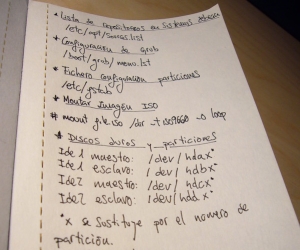 * Lista de repositorios en sistemas debian
/etc/apt/sources.list
* Configuración de Grub
/boot/grub/menu.lst
* Fichero configuración particiones
/etc/fstab
* Montar Imagen ISO
# mount file.iso /dir -t iso9660 -o loop
* Discos duros y particiones
Ide 1 maestro: /dev/hdax*
Ide 1 esclavo: /dev/hdbx*
Ide2 maestro: /dev/hdcx*
Ide2 esclavo: /dev/hddx*
*x se sustituye por el numero de
partición.